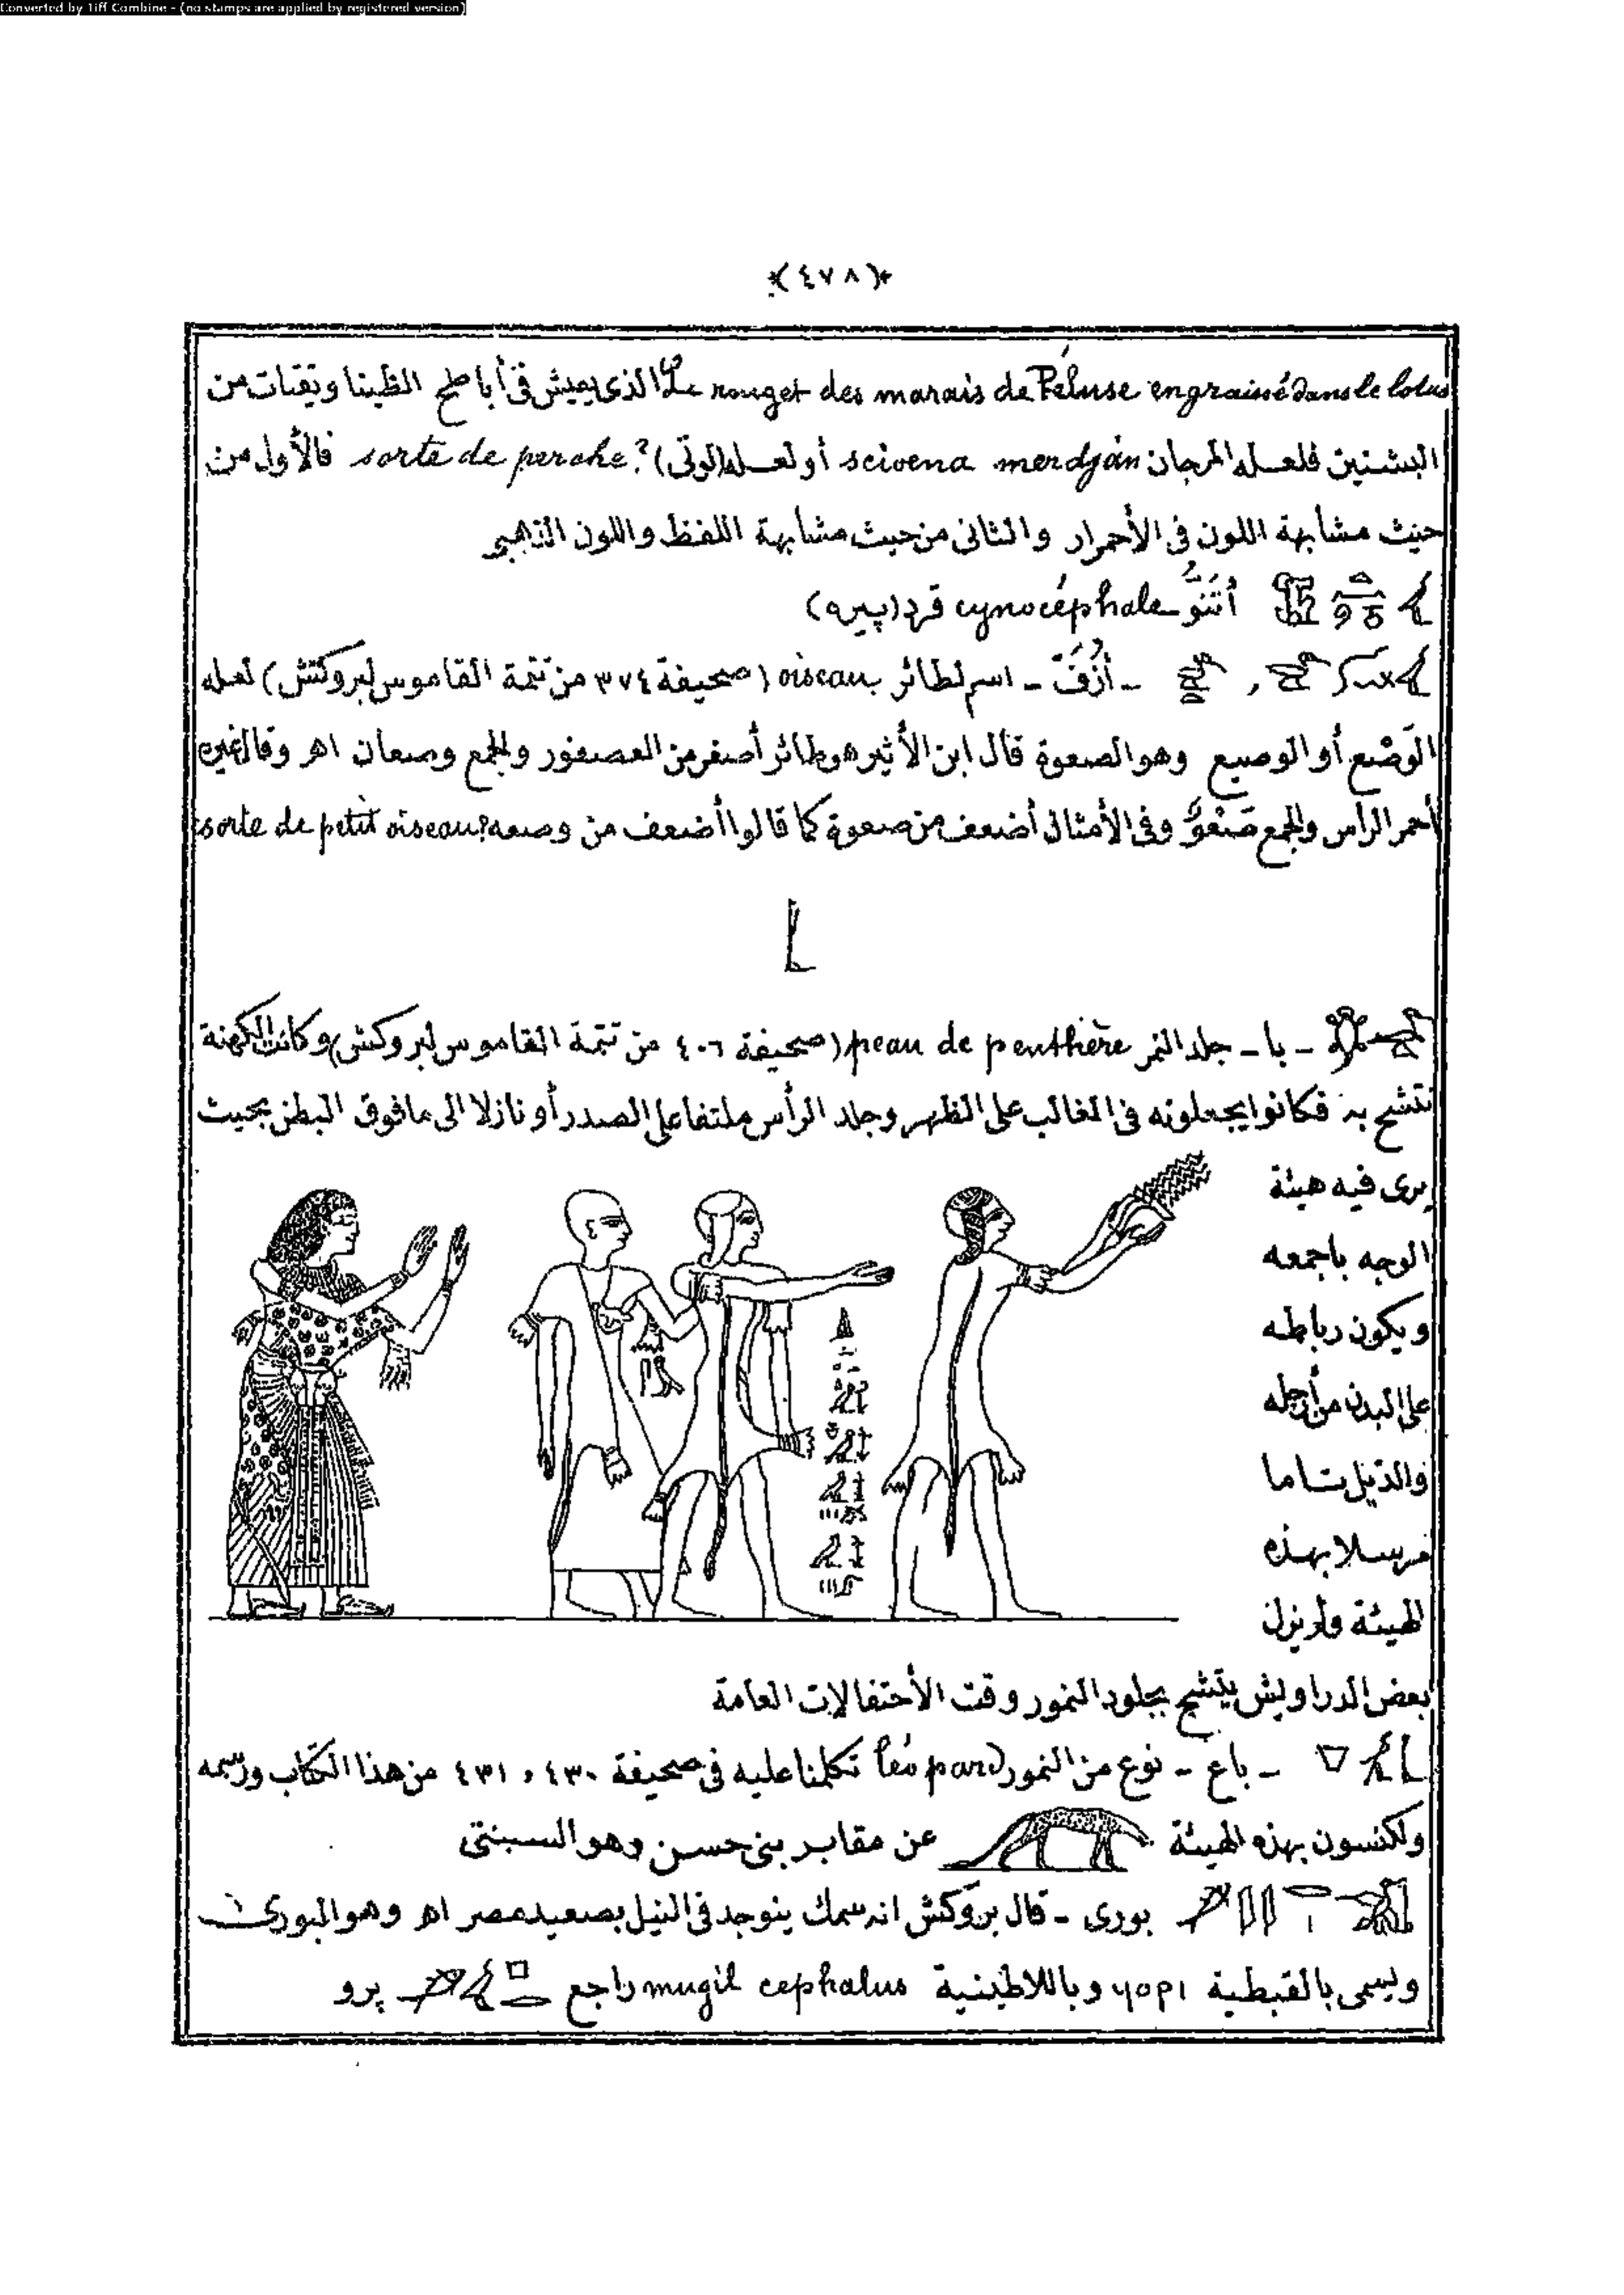 Converted by Tiff Combine - (no stamps are applied by registered version)
(٤٧٨)
Le rouget des marais de Péluse engraissé dans le lotus الذى يعيش فى أباطح الظينا ويقتات من
البشنين فلعله المرجان sciœna merdjàn أو لعله (الوتى) sorte de perche? فالأول من
حيث مشابهة اللون فى الأحمرار والثانى من حيث مشابهة اللفظ واللون الذهبى
أتنو - cynocéphale قرد (پيره)
- أزف - اسم لطائر oiseau (صحيفة ٣٧٤ من تتمة القاموس لبروكتش) لعله
الوَصْع أو الوصيع وهو الصعوة قال ابن الأثير هو طائر أصغر من العصفور والجمع وصعان اهر وقال غيره
أحمر الرأس والجمع صَعْو وفى الأمثال أضعف من صعوة كما قالوا أضعف من وصعه sorte de petit oiseau?
- با - جلد النمر peau de penthère (صحيفة ٤٠٦ من تتمة القاموس لبروكتش) وكانت الكهنة
تتشح به فكانوا يجعلونه فى الغالب على الظهر وجلد الرأس ملتفا على الصدر أو نازلا الى ما فوق البطن بحيث
يرى فيه هيئة
الوجه باجمعه
ويكون رباطه
على البدن من أرجله
والذيل تاما
مرسلا بهذه
الهيئة ولم يزل
بعض الدراويش يتشح بجلود النمور وقت الأحتفالات العامة
- باع - نوع من النمور (léopard) تكلمنا عليه فى صحيفة ٤٣٠ و ٤٣١ من هذا الكتاب ورسمه
ولكنسون بهذه الهيئة عن مقابر بنى حسن وهو السبنتى
بورى - قال بروكش انه سمك يتوجد فى النيل بصعيد مصر اهر وهو البورى
ويسمى بالقبطية ϥopi وباللاطينية mugil cephalus راجع پرو